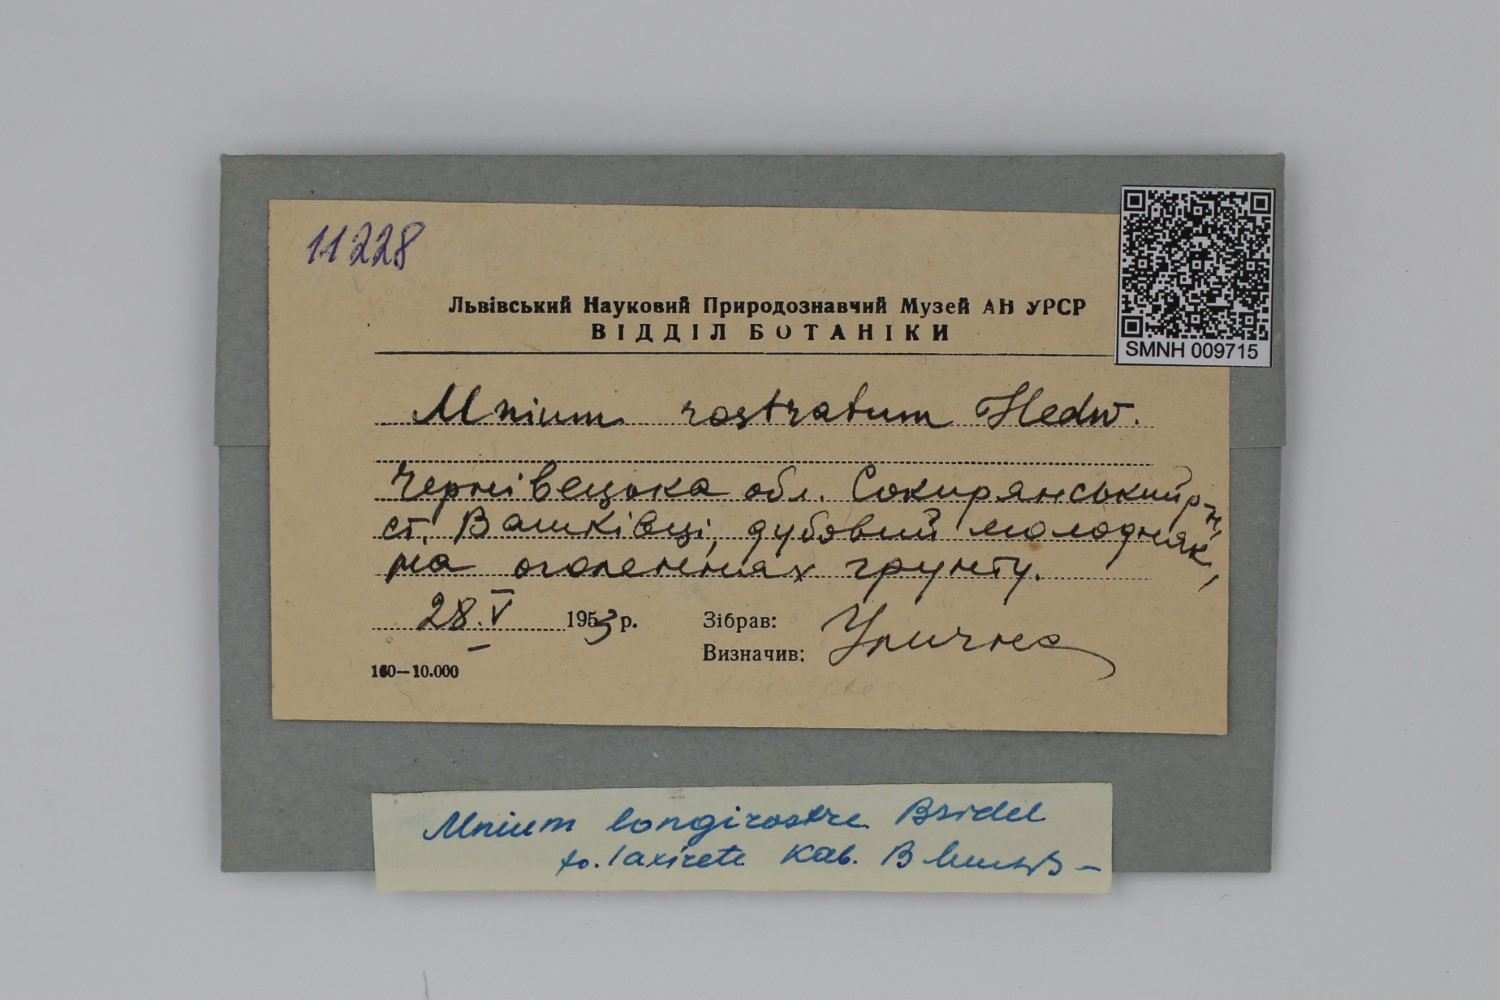 11228
SMNH 009715
Львівський Науковий Природознавчий Музей АН УРСР
ВІДДІЛ БОТАНІКИ
Mnium rostratum Hedw.
Чернівецька обл. Сокирянський р-н,
ст. Вашківці, дубовий молодняк,
на оголеннях грунту.
28.V 1953 р.
Зібрав: Улична
Визначив:
160—10.000
Mnium longirostre Bridel
fo. laxirete Kab.